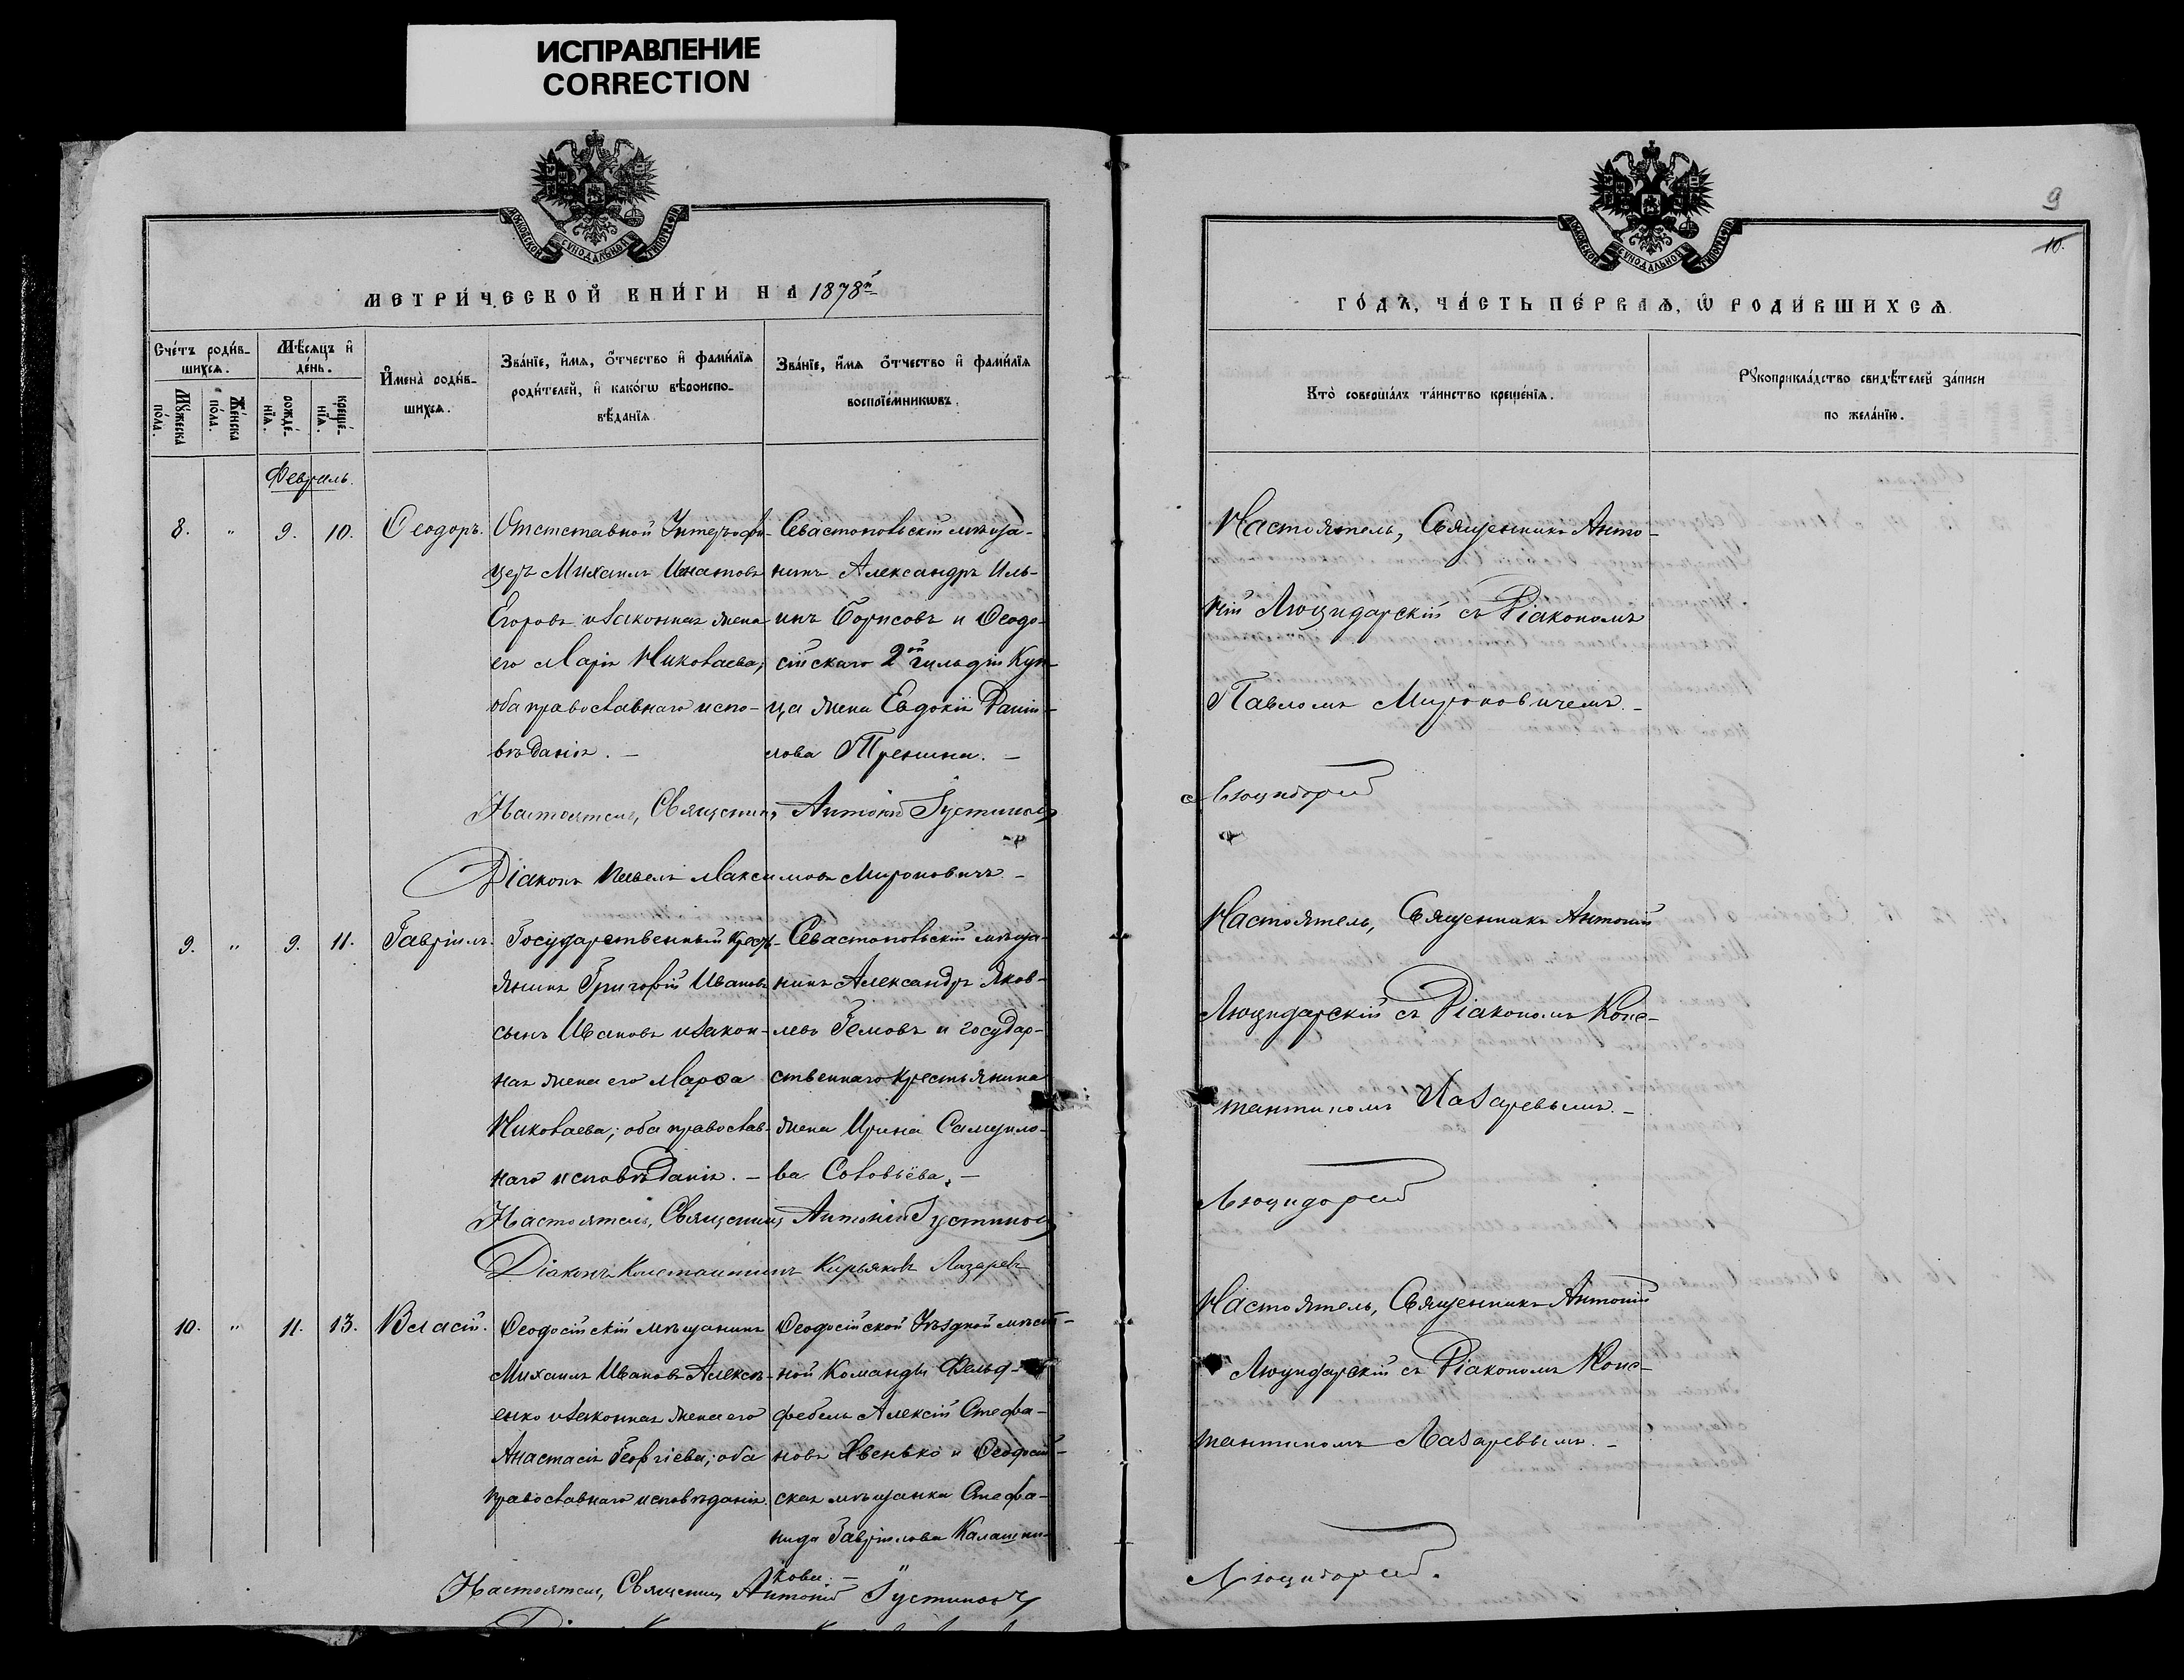 ИСПРАВЛЕНИЕ
CORRECTION
МОСКОВСКОЙ СѴНОДАЛЬНОЙ ТИПОГРАФІИ
МЕТРИ́ЧЕСКОЙ КНИ́ГИ НА 1878й
Сче́тъ роди́в-
шихсѧ.
Мꙋ́жеска по́ла.
Же́нска по́ла.
Мѣ́сѧцъ и҆ де́нь.
рожде́-
нїѧ.
креще́-
нїѧ.
И҆мена̀ роди́в-
шихсѧ.
Зва́нїе, и҆́мѧ, ѻ҆́тчество и҆ фами́лїѧ
роди́телей, и҆ како́гѡ вѣроиспо-
вѣ́данїѧ
Зва́нїе, и҆́мѧ ѻ҆́тчество и҆ фами́лїѧ
воспрїе́мникѡвъ.
Февраль.
8. " 9. 10. Ѳеодоръ.
Отставной Унтеръ-офи-
церъ Михаилъ Игнатовъ
Егоровъ и законная жена
его Марія Николаева;
оба православнаго испо-
вѣданія. —
Севастопольскій мѣща-
нинъ Александръ Иль-
инъ Борисовъ и Ѳеодо-
сійскаго 2ой гильдіи Куп-
ца жена Евдокія Данiи-
лова
Настоятель, Священникъ Антоній Іустиновъ
Діаконъ Павелъ Максимовъ Мироновичъ. —
9. " 9. 11. Гавріилъ.
Государственный Кресть-
янинъ Григорій Ивановъ
сынъ Ивановъ и закон-
ная жена его Марѳа
Николаева; оба православ-
наго исповѣданія. —
Севастопольскій мѣща-
нинъ Александръ Яков-
левъ Гемовъ и государ-
ственнаго крестьянина
жена Ирина Самуило-
ва Соловьёва. —
Настоятель, Священникъ Антоній Іустиновъ
Діаконъ Константинъ Кирьяковъ Лазаревъ
10. " 11. 13. Власій.
Ѳеодосійскій мѣщанинъ
Михаилъ Ивановъ Алексѣ-
енко и законная жена его
Анастасія Георгіева; оба
православнаго исповѣданія.
Ѳеодосійской Уѣздной мѣст-
ной Команды Фельд-
фебель Алексій Стефа-
новъ Явенько и Ѳеодосій-
ская мѣщанка Стефа-
нида Гавріилова Калашни-
кова. —
Настоятель, Священникъ Антоній Іустиновъ
9
10.
МОСКОВСКОЙ СѴНОДАЛЬНОЙ ТИПОГРАФІИ
ГО́ДЪ, ЧА́СТЬ ПЕ́РВАѦ, Ѡ҆ РОДИ́ВШИХСѦ
Кто̀ соверша́лъ та́инство креще́нїѧ.
Рꙋкоприкла́дство свидѣ́телей за́писи
по жела́нїю.
Настоятель, Священникъ Анто-
ній Люцидарскій съ Діакономъ
Павломъ Мироновичемъ. —
Люцидарскій
Настоятель, Священникъ Антоній
Люцидарскій съ Діакономъ Конс-
тантиномъ Лазаревымъ. —
Люцидарскій
Настоятель, Священникъ Антоній
Люцидарскій съ Діакономъ Конс-
тантиномъ Лазаревымъ. —
Люцидарскій